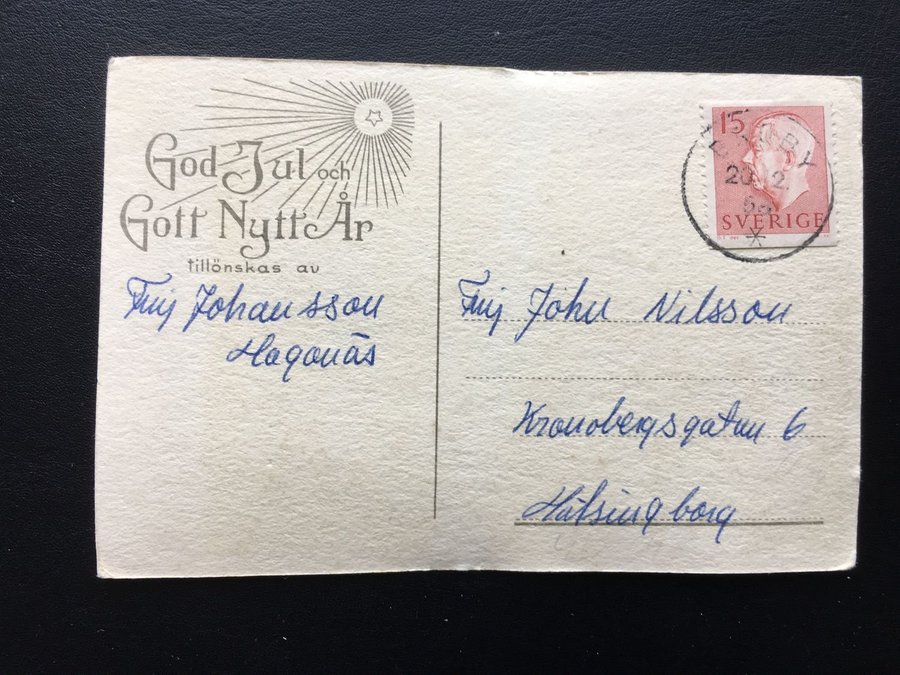 God Jul och
Gott Nytt År
tillönskas av
Johansson
Hagonäs
15
SVERIGE
John Nilsson
Kronobergsgatan 6
Hälsingborg